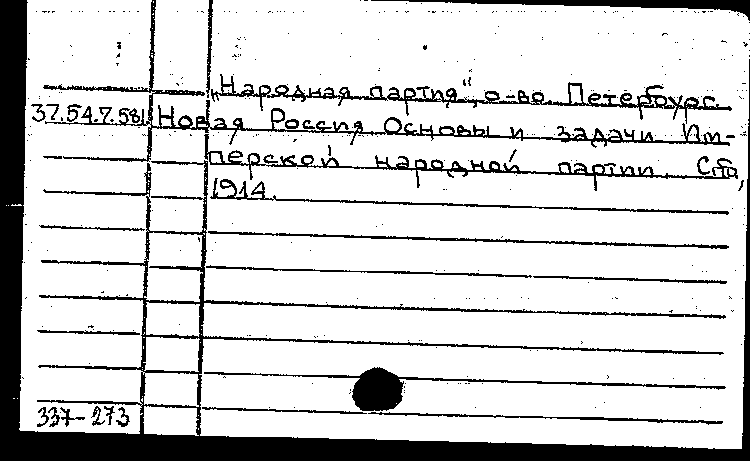 „Народная партия“, о-во. Петербург.
37.54.7.581. Новая Россия. Основы и задачи Им-
перской народной партии. Спб,
1914.
337-273